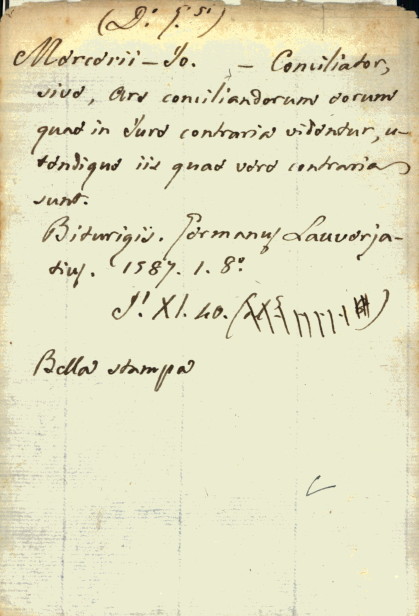 (D. g.si)
Mercerii - Jo. - Conciliator,
sive, Ars conciliandorum eorum
quae in Jure contraria videntur, u-
tendique iis quae vere contraria
sunt.
Biturigis. Germanus Lauverja-
tius. 1587. 1. 8.º
J! XI. 40.
Bella stampa